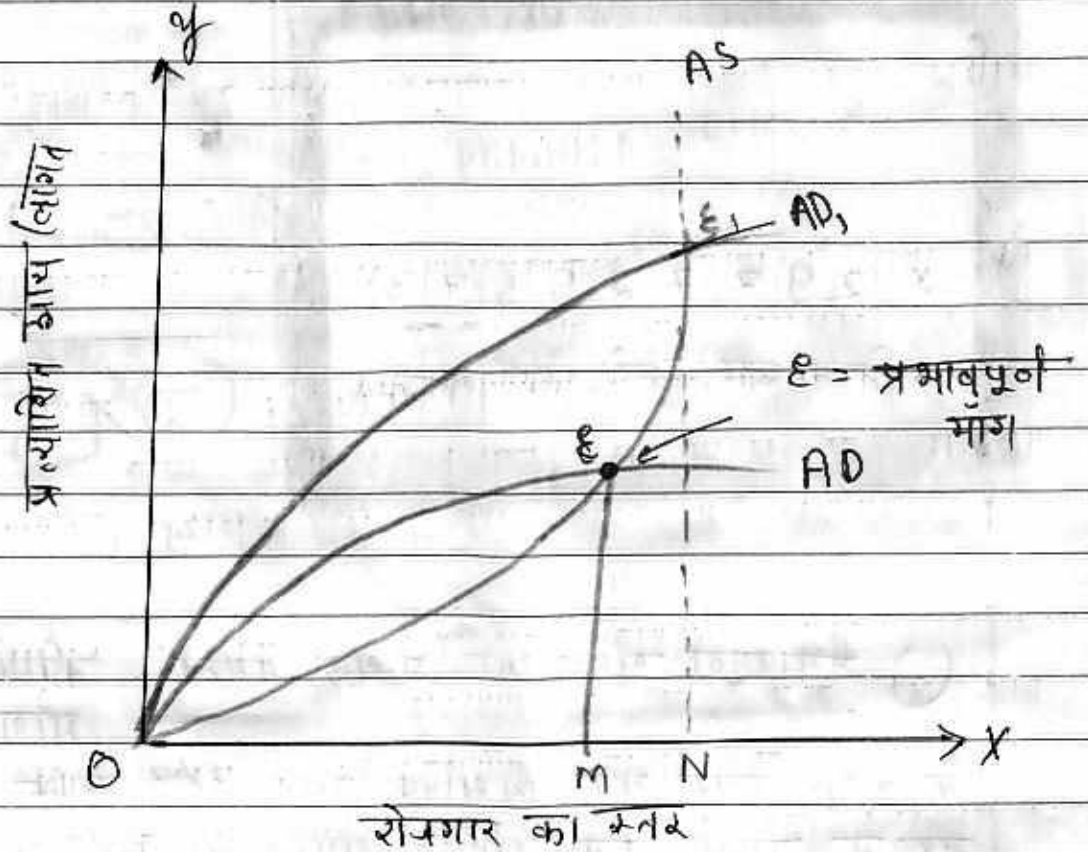 y
AS
प्रत्याशित आय (लागत
E₁
AD₁
E = प्रभावपूर्ण
माँग
E
AD
O
M
N
X
रोजगार का स्तर